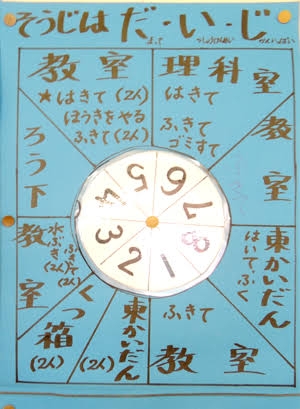 そうじは だ・い・じ
まって っしょうけんめい かんいっぱい
教室
★はきて(2人)
ほうきをやる
ふきて(2人)
理科室
はきて
ふきて
ゴミすて
教室
東かいだん
はいて、ふく
教室
ふきて
東かいだん
(2人)
くつ箱
(2人)
教室
水ぶきて(2人)
ろう下
1
2
3
4
5
6
7
8